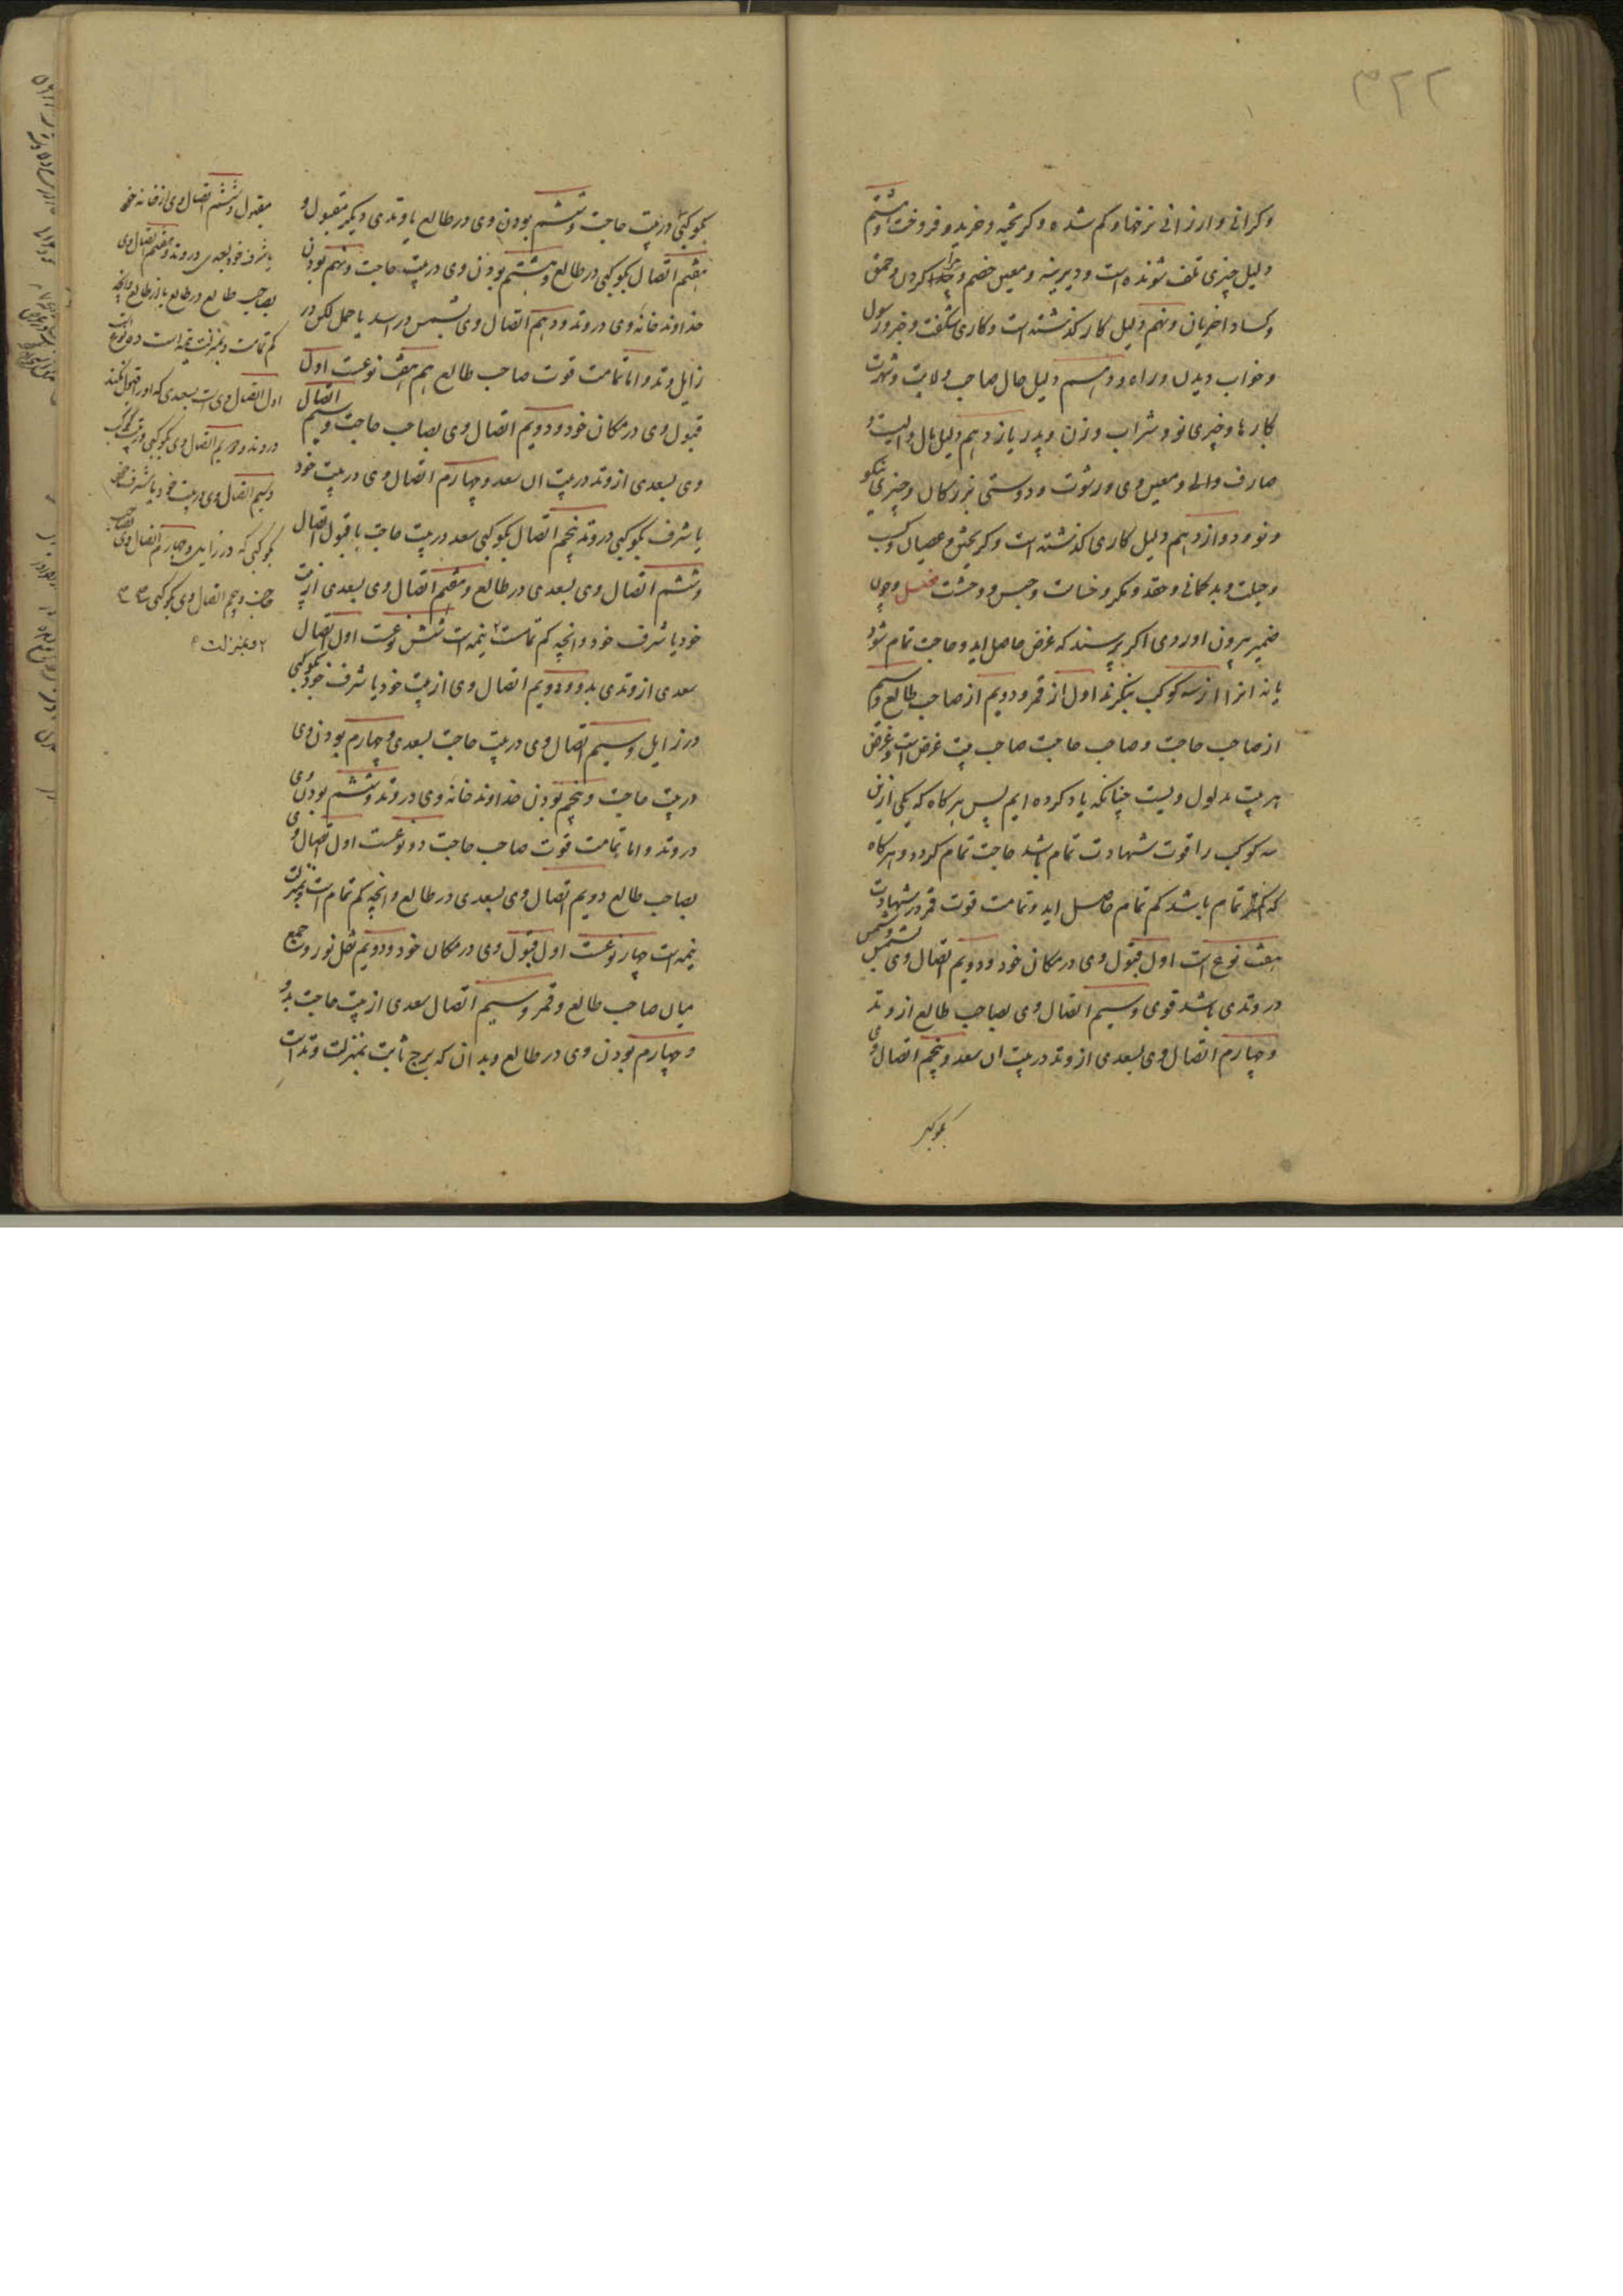 ۳۲۲
وکرانی وارزانی نرخها وکم شده وکریخته وخرید وفروخت وهشتم
دلیل چیزی تلف شونده است ودیرینه ومعین خصم وچرا کردن وحمق
وکساد اخریان ونهم دلیل کار کذشته است وکاری شکفت وخبر رسول
وخواب دیدن وراه ودهم دلیل حال صاحب ولایت وشهرت
کارها وچیزی نو وشراب وزن وپدر یازدهم دلیل مال والیست و
صارف والی ومعین وی ورشوت ودوستی بزرکان وچیزی نیکو
ونو ودوازدهم دلیل کاری کذشته است وکریختن وعصیان وکسب
وحیلت وبدکمانی وحقد ومکر وخسات وحبس ووحشت فصل وچون
ضمیر بیرون اوردی اکر پرسند که غرض حاصل اید وحاجت تمام شود
یا نه انرا از سه کوکب بنکرند اول از قمر ودویم از صاحب طالع وسیم
از صاحب حاجت وصاحب حاجت صاحب بیت غرض است وغرض
هر بیت مدلول ویست چنانکه یاد کرده ایم پس هرکاه که یکی ازین
سه کوکب را قوت شهادت تمام باشد حاجت تمام کردد وهرکاه
که کمتر تمام باشد کم تمام حاصل اید وتمامت قوت قمر در شهادت
هفت نوع است اول قبول وی در مکان خود ودویم اتصال وی بشمس وشمس
در وتدی باشد قوی وسیم اتصال وی بصاحب طالع از وتد
وچهارم اتصال وی بسعدی از وتد در بیت ان سعد وپنجم اتصال وی
بکوکبی
بکوکبی در بیت حاجت وششم بودن وی در طالع یا وتدی دیکر مقبول و
هفتم اتصال بکوکبی در طالع وهشتم بودن وی در بیت حاجت ونهم بودن
خداوند خانه وی در وتد ودهم اتصال وی بشمس در اسد یا حمل لکن در
زایل وتد واما تمامت قوت صاحب طالع هم هفت نوعست اول
قبول وی در مکان خود ودویم اتصال وی بصاحب حاجت وسیم اتصال
وی بسعدی از وتد در بیت ان سعد وچهارم اتصال وی در بیت خود
یا شرف بکوکبی در وتد پنجم اتصال بکوکبی سعد در بیت حاجت با قبول اتصال
وششم اتصال وی بسعدی در طالع وهفتم اتصال وی بسعدی از بیت
خود یا شرف خود وانچه کم تمامست نیمه است شش نوعست اول اتصال
سعدی از وتدی بدو ودویم اتصال وی از بیت خود یا شرف خود بکوکبی
در زایل وسیم اتصال وی در بیت حاجت بسعدی وچهارم بودن وی
در بیت حاجت وپنجم بودن خداوند خانه وی در وتد وششم بودن وی
در وتد واما تمامت قوت صاحب حاجت دو نوعست اول اتصال وی
بصاحب طالع دویم اتصال وی بسعدی در طالع وانچه کم تمام است وبمنزلت
نیمه است چهار نوعست اول قبول وی در مکان خود ودویم نقل نور وجمع
میان صاحب طالع وقمر وسیم اتصال سعدی از بیت حاجت بدو
وچهارم بودن وی در طالع وبدان که برج ثابت بمنزلت وتد است
مقبول وششم اتصال وی از خانه خود
یا شرف خود بسعدی در وتد وهفتم اتصال وی
بصاحب طالع در طالع یا از طالع وانچه
کم تمامست وبمنزلت نیمه است دو نوع است
اول اتصال وی است بسعدی که او را قبول نکند
در وتد ودویم اتصال وی بکوکبی در شرف
وسیم اتصال وی در بیت خود یا شرف خود
بکوکبی که در زایل وچهارم اتصال وی بصاحب
حاجت وپنجم اتصال وی بکوکبی